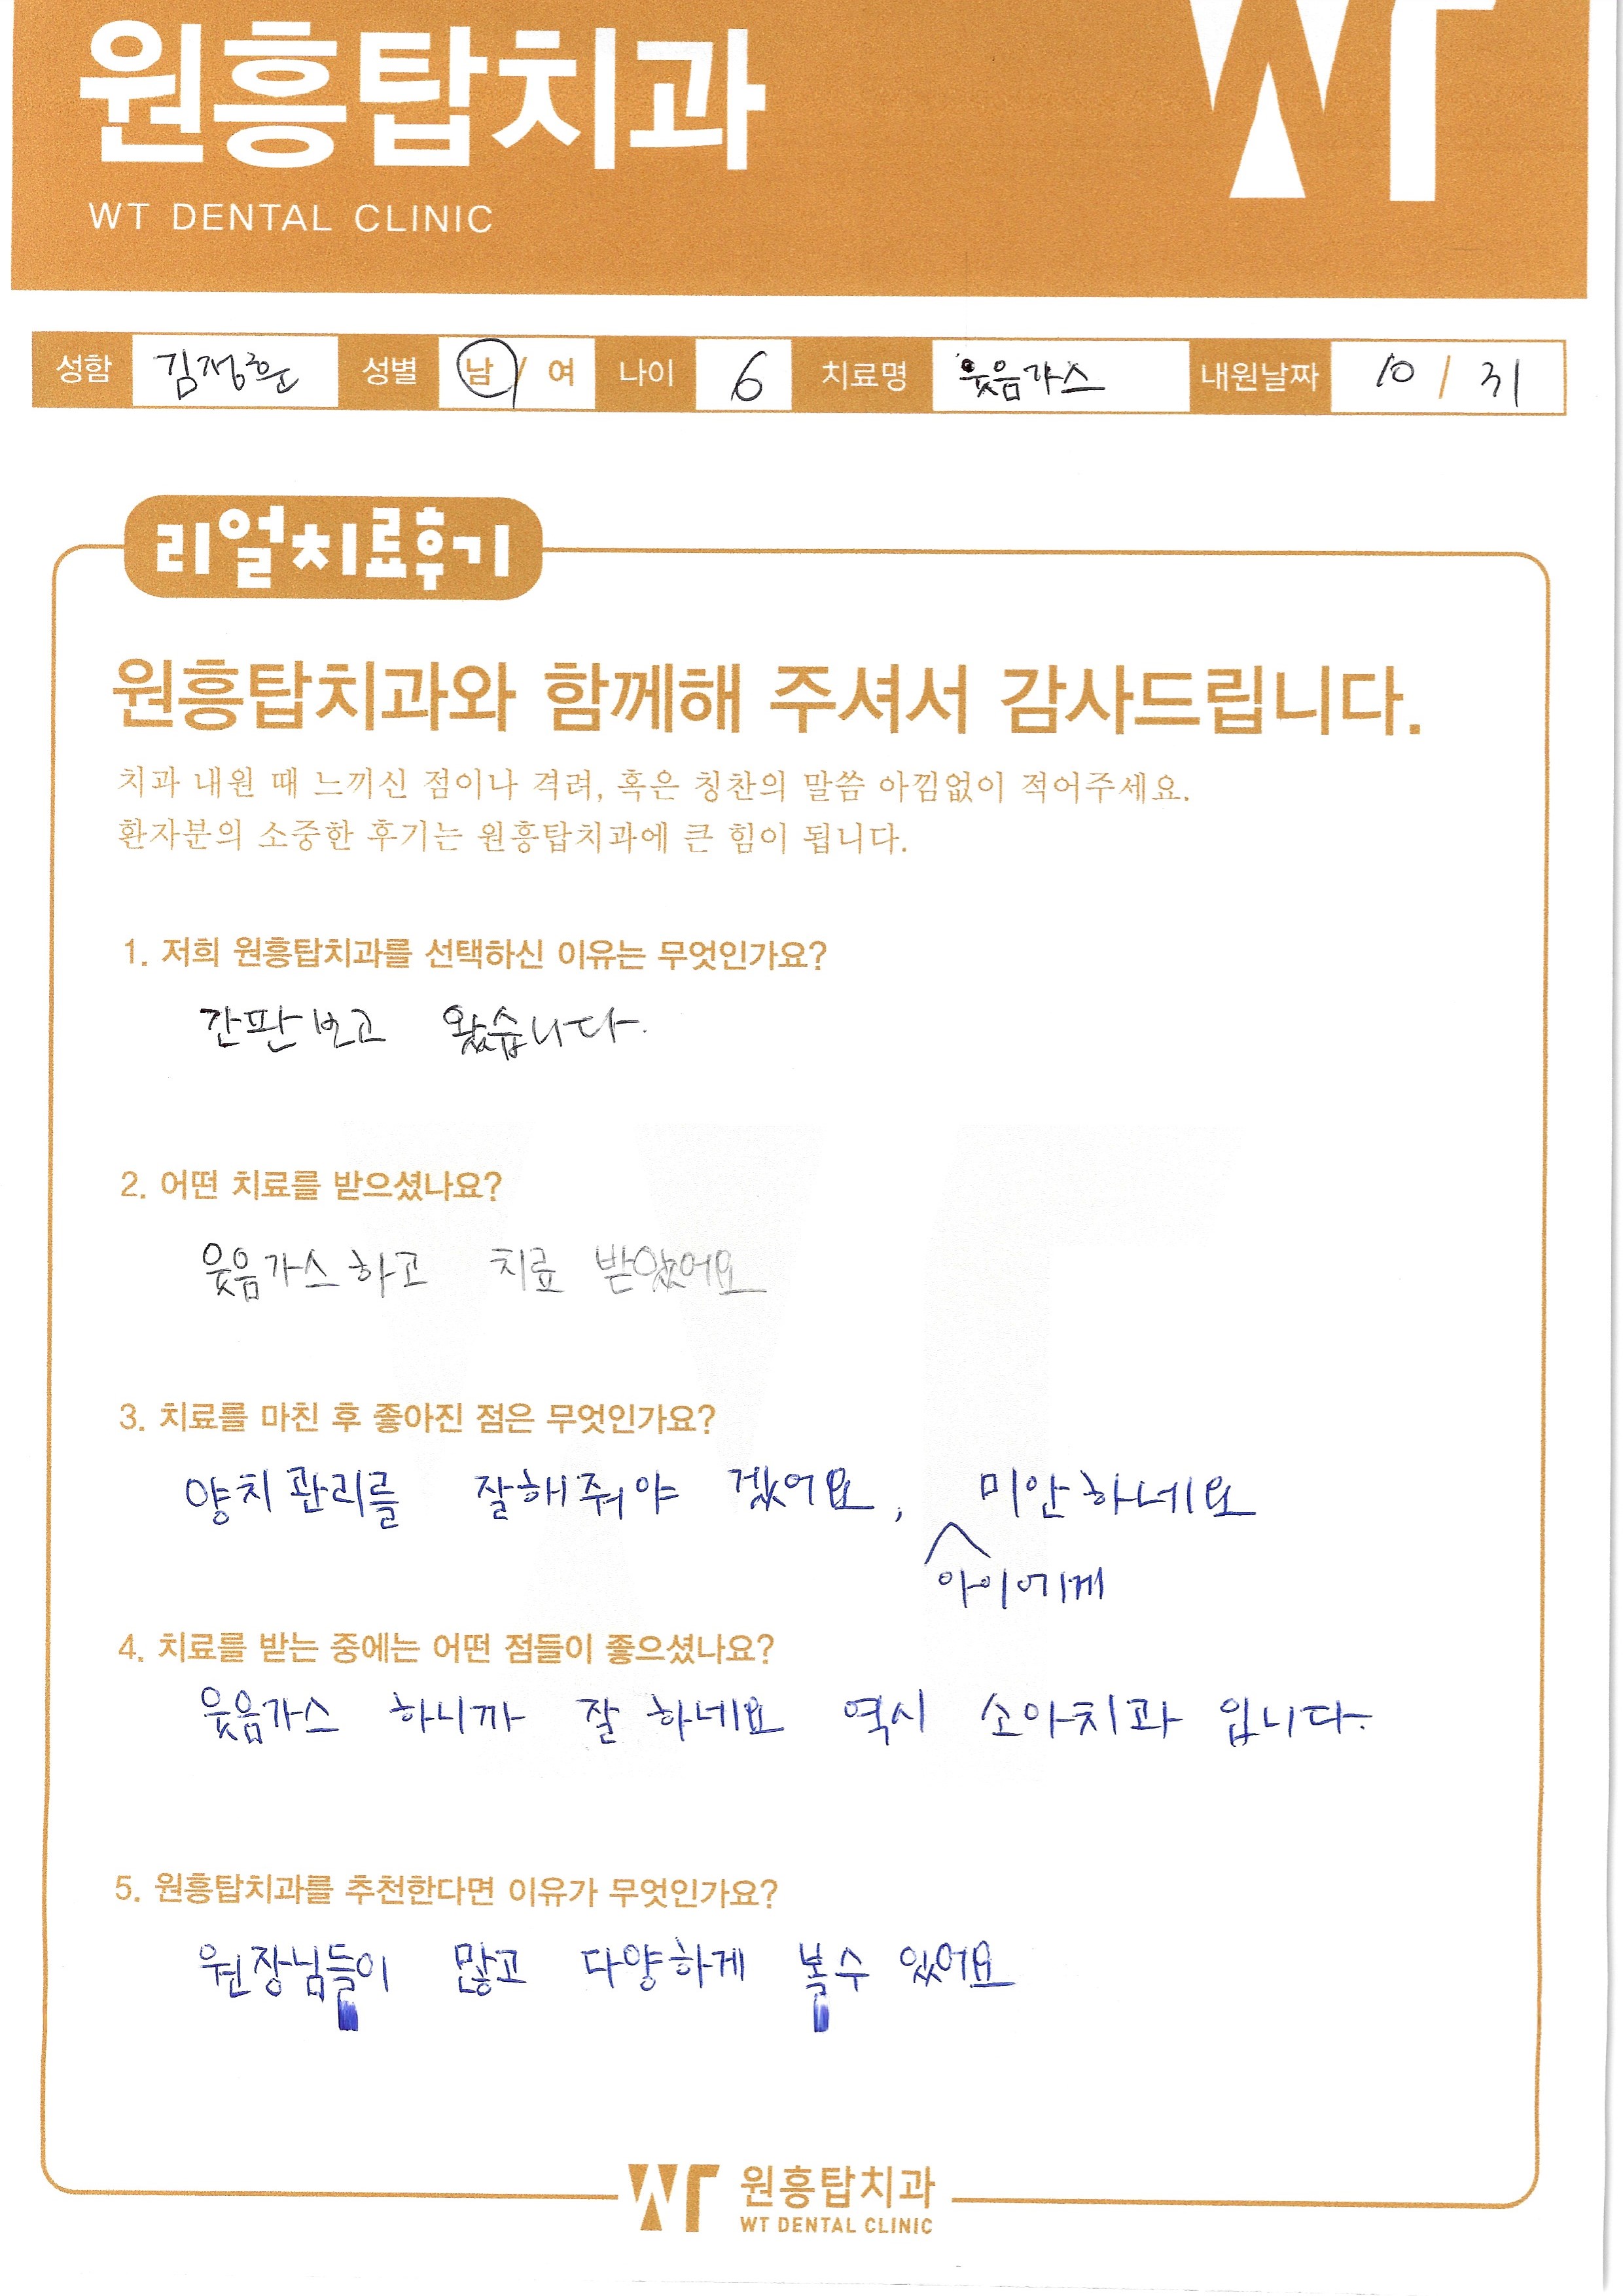 원흥탑치과
WT
WT DENTAL CLINIC
성함 김정훈 성별 남 / 여 나이 6 치료명 웃음가스 내원날짜 10 / 31
리얼치료후기
원흥탑치과와 함께해 주셔서 감사드립니다.
치과 내원 때 느끼신 점이나 격려, 혹은 칭찬의 말씀 아낌없이 적어주세요.
환자분의 소중한 후기는 원흥탑치과에 큰 힘이 됩니다.
1. 저희 원흥탑치과를 선택하신 이유는 무엇인가요?
간판보고 왔습니다.
2. 어떤 치료를 받으셨나요?
웃음가스하고 치료 받았어요
3. 치료를 마친 후 좋아진 점은 무엇인가요?
양치관리를 잘해줘야 겠어요, 미안하네요
아이에게
4. 치료를 받는 중에는 어떤 점들이 좋으셨나요?
웃음가스 하니까 잘 하네요 역시 소아치과 입니다.
5. 원흥탑치과를 추천한다면 이유가 무엇인가요?
원장님들이 많고 다양하게 볼수 있어요
WT 원흥탑치과
WT DENTAL CLINIC